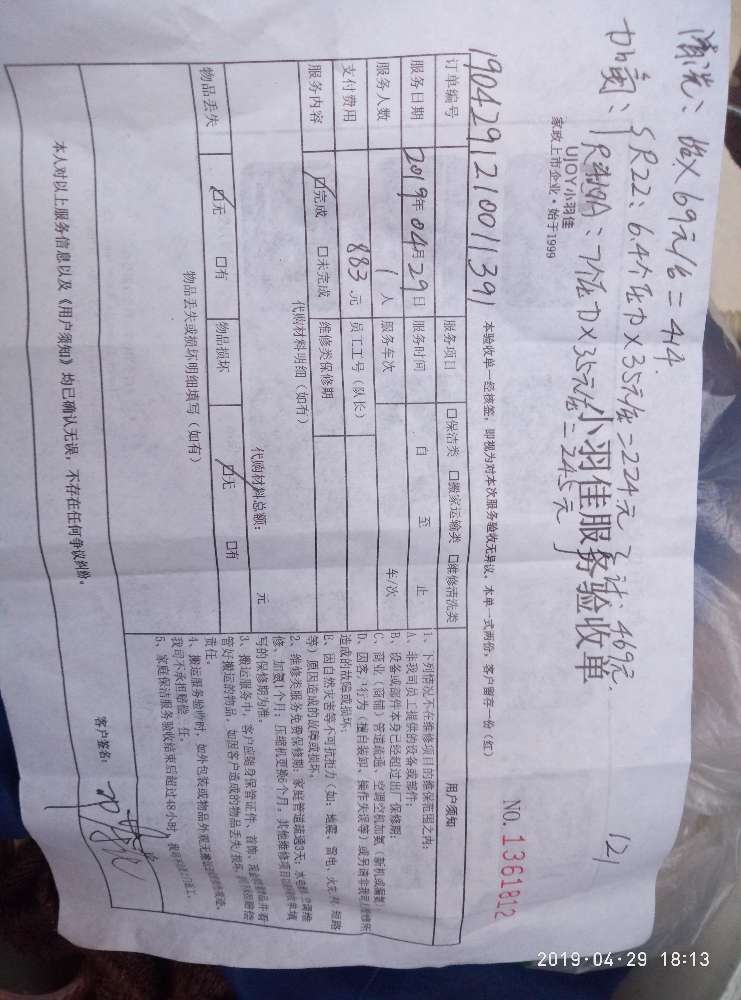 清洗: 6台×69元/台=414.
加氟: SR22: 6.4个压力×35元/压=224元 总计: 469元.
7个压力×35元/压=245元
121
UJOY小羽佳
家政上市企业·始于1999
小羽佳服务验收单
NO.1361812
190429121001139
本验收单一经核签,即视为对本次服务验收无异议。本单一式两份,客户留存一份(红)
订单编号
服务项目 口保洁类 口搬家运输类 口维修清洗类
服务日期 2019年04月29日 服务时间 自 至 止
服务人数 1人 服务车次 车/次
支付费用 883元 员工工号(队长)
服务内容 ☑完成 口未完成 维修类保修期
代购材料明细(如有)
代购材料总额: 元
物品丢失 ☑无 口有 物品损坏 ☑无 口有
物品丢失或损坏明细填写(如有)
本人对以上服务信息以及《用户须知》均已确认无误,不存在任何争议纠纷。
用户须知
1、下列情况不在维修项目的维保范围之内:
A、非我司员工提供的设备或部件;
B、设备或部件本身已经超过出厂保修期;
C、商业(商铺)管道疏通、空调空机加氨(新机或漏氨)
D、因客户行为(擅自装卸、操作失误等)或另请非我司
造成的故障或损坏;
E、因自然灾害等不可抗拒力(如:地震、雷电、火灾 短路
等)原因造成的故障或损坏。
2、维修类服务免费保修期:家庭管道疏通3天;水电 空调维
修、加氨1个月;压缩机更换6个月,其他维修项目 填
写的保修期为准。
3、搬运服务中,客户应随身保管证件、首饰、现金 并看
管好搬运的物品,如因客户造成的物品丢失/损坏, 赔偿
责任。
4、搬运服务验收时,如外包装或物品外观无
我司不承担赔偿责任。
5、家庭保洁服务验收结束后超过48小时,
客户签名:
2019-04-29 18:13